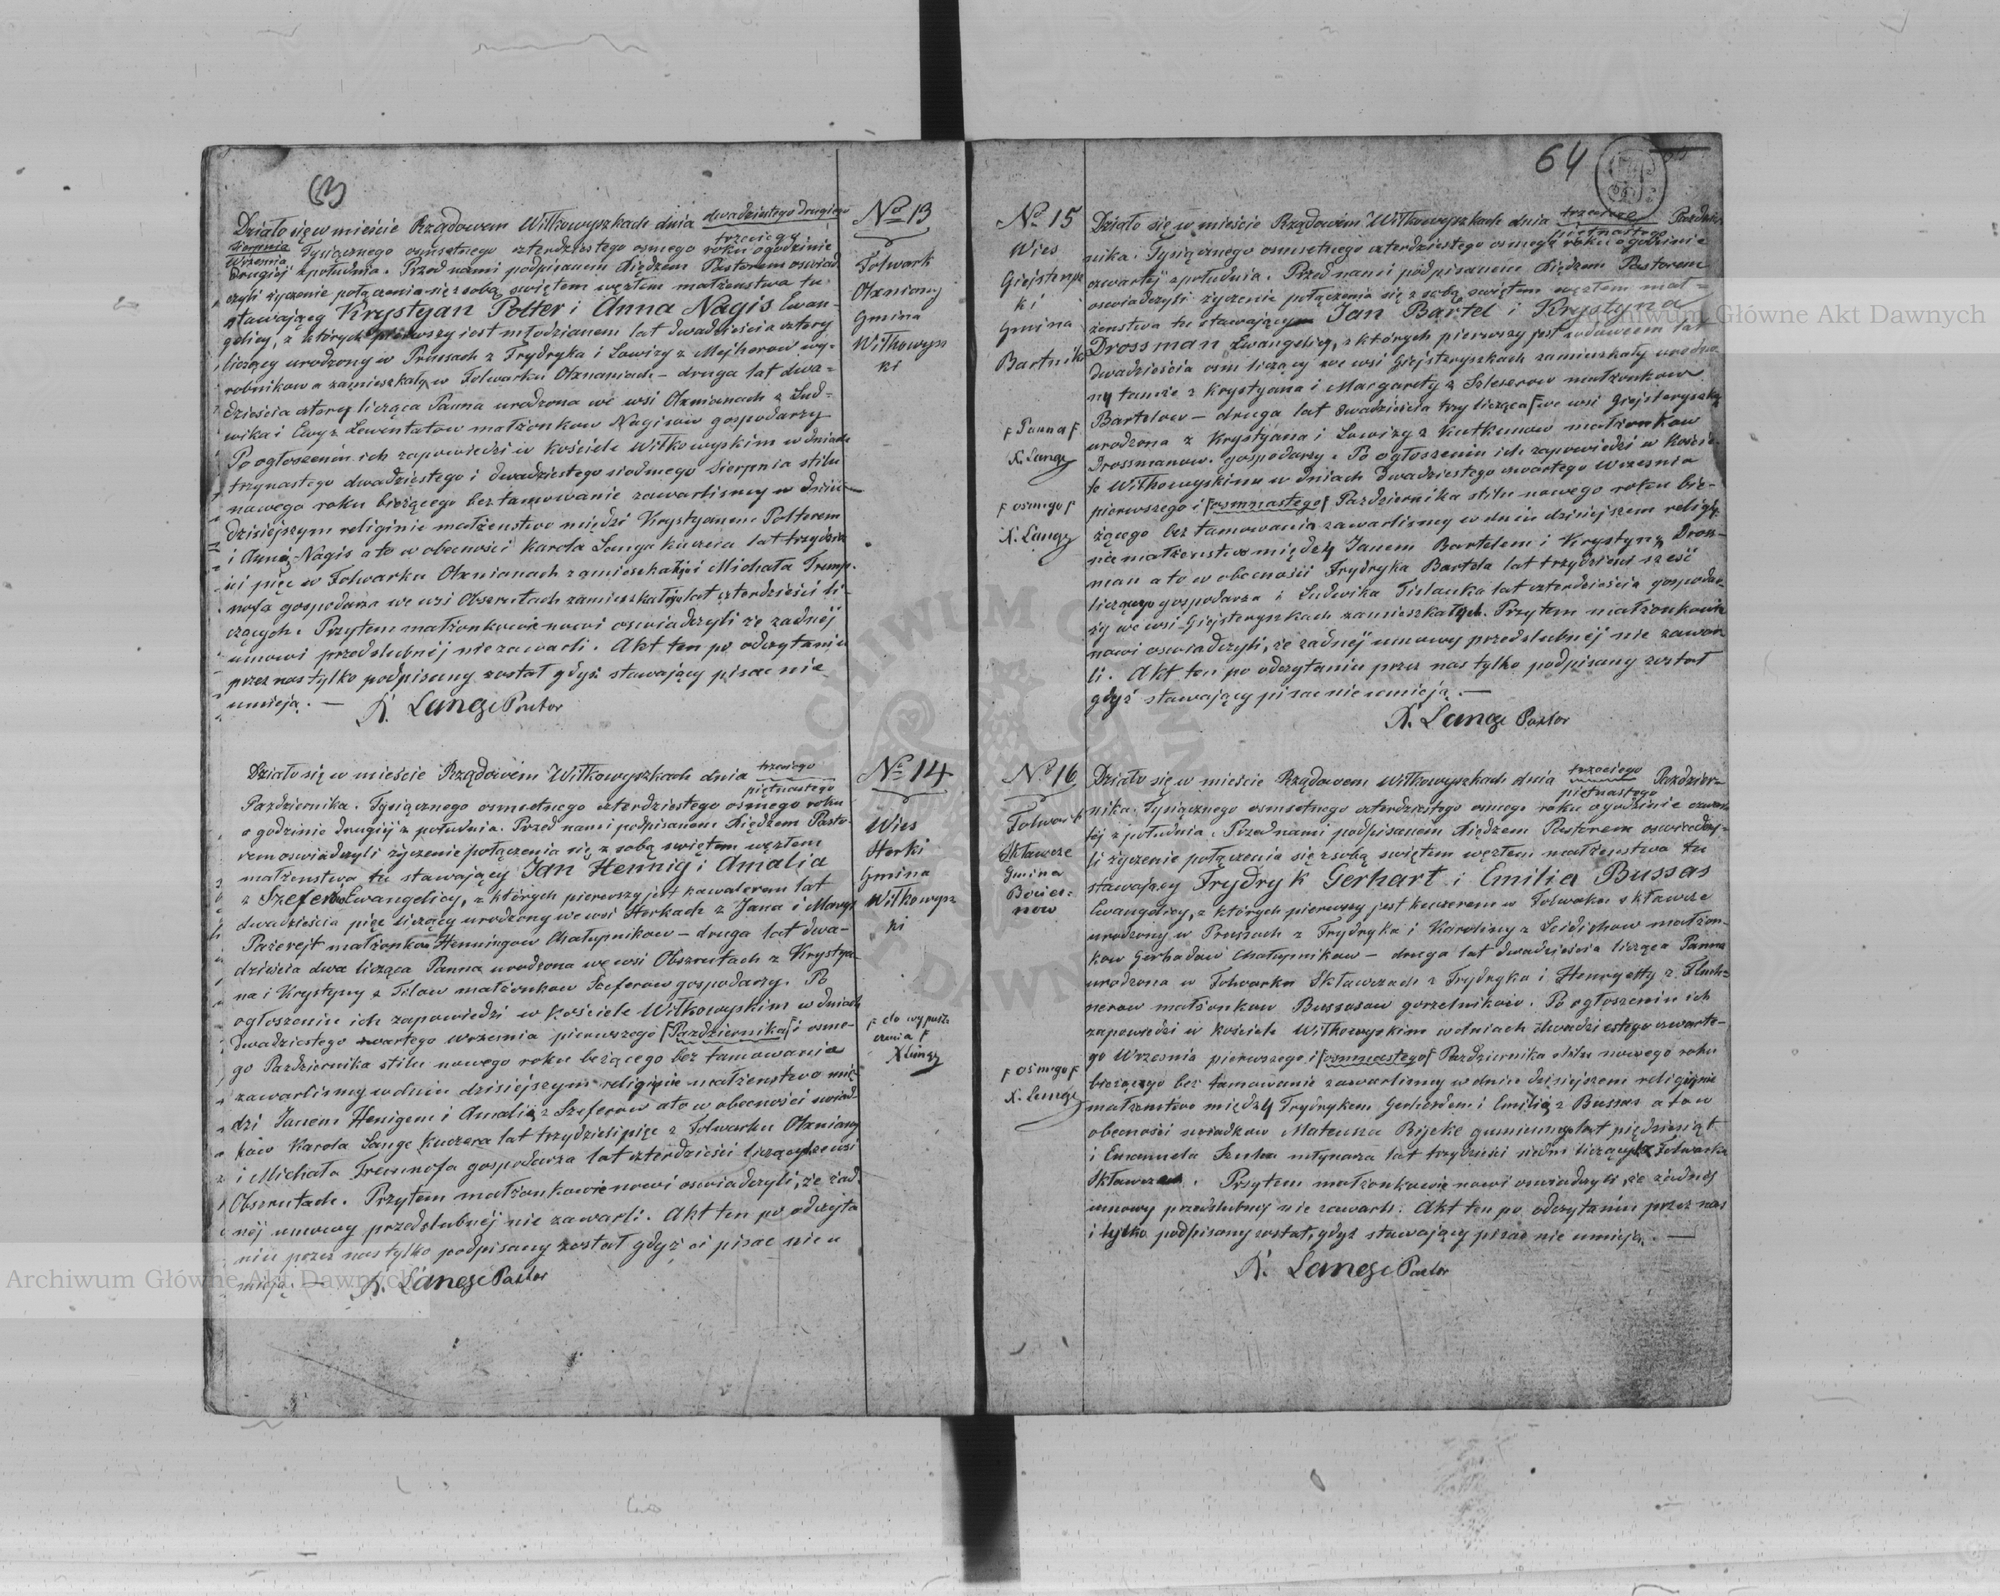 (3)
Działo się w mieście Rządowem Wiłkowyszkach dnia dwudziestego drugiego
Sierpnia
trzeciego
Września Tysiącznego osmsetnego czterdziestego osmego roku o godzinie
drugiéj z południa. Przed nami podpisanem Xiędzem Pastorem oswiad
czyli życzenie połączenia się z sobą swiętem węzłem małżenstwa tu
stawający Krystyan Polter i Anna Nagis Ewan-
gelicy, z których pierwszy jest młodzianem lat dwadziescia cztery
liczący urodzony w Prusach z Frydryka i Lowizy z Mejherow wy-
robnikow zamieszkały w Folwarku Ożnianach – druga lat dwa-
dziescia cztery licząca Panna urodzona we wsi Ożnianach z Lud-
wika i Ewy z Lewentatow małżonkow Nagisow gospodarzy
Po ogłoszeniu ich zapowiedzi w Kościele Wiłkowyskim w dniach
trzynastego dwudziestego i dwudziestego siodmego Sierpnia stilu
nowego roku bieżącego bez tamowania zawarlismy w dniu
dzisiejszym religijnie małżenstwo między Krystyanem Polterem
i Anną Nagis a to w obecności Karola Langa kuczera lat trzydzies
ci pięć w Folwarku Ożnianach zamieszkałego i Michała Tremp-
nofa gospodarza we wsi Obszrutach zamieszkałego lat czterdzieści li-
czących. Przytem małżonkowie nowi oswiadczyli że zadnéj
umowi przedslubnéj nie zawarli. Akt ten po odczytaniu
przez nas tylko podpisany został gdyż stawający pisac nie
umieją. — X. Lange Pastor
No 13
Folwark
Ożniany
Gmina
Wiłkowysz
ki
Działo się w mieście Rządowem Wiłkowyszkach dnia trzeciego
piętnastego
Pazdziernika. Tysiącznego osmsetnego czterdziestego osmego roku
o godzinie drugiéj z południa. Przed nami podpisanem Xiędzem Pasto-
rem oswiadczyli życzenie połączenia się z sobą swiętem węzłem
małżenstwa tu stawający Jan Hennig i Amalia
z Szeferów Ewangelicy, z których pierwszy jest kawalerem lat
dwadzieścia pięć liczący urodzony we wsi Sterkach z Jana i Maryi
małżonkow Henningow Chałupnikow – druga lat dwa-
dzieścia dwa licząca Panna urodzona we wsi Obszrutach z Krystya-
na i Krystyny z Tilow małżonkow Szeferow gospodarzy. Po
ogłoszeniu ich zapowiedzi w Kościele Wiłkowyskim w dniach
dwudziestego czwartego Września pierwszego Pazdziernika i osme-
go Pazdziernika stilu nowego roku bieżącego bez tamowania
zawarlismy w dniu dzisiejszym religijnie małżenstwo mię-
dzi Janem Henigem i Amalią z Szeferow a to w obecności swiad-
ków Karola Lange kuczera lat trzydzieści pięć z Folwarku Ożniany
i Michała Tremnofa gospodarza lat czterdzieści liczących ze wsi
Obszrutach. Przytem małżonkowie nowi oswiadczyli, że żad-
néj umowy przedslubnéj nie zawarli. Akt ten po odczyta
niu przez nas tylko podpisany został gdyż ci pisac nie u
mieją. — X. Lange Pastor
No 14
Wies
Sterki
Gmina
Wiłkowysz
ki
do wypusz
czenia
X Lange
64
No 15
Wies
Giejsterysz
ki
Gmina
Bartniki
Panna
X. Lange
osmego
X. Lange
Działo się w mieście Rządowem Wiłkowyszkach dnia trzeciego
piętnastego Pazdzier
nika. Tysiącznego osmsetnego czterdziestego osmego roku o godzinie
czwartéj z południa. Przed nami podpisanem Xiędzem Pastorem
oswiadczyli życzenie połączenia się z sobą swiętem węzłem mał-
żenstwa tu stawający Jan Bartel i Krystyna
Drossman Ewangelicy, z których pierwszy jest wdowcem lat
dwadzieścia osm liczący we wsi Giejsteryszkach zamieszkały urodzo
ny tamże z Krystyana i Margarety z Szleserow małżonkow
Bartelow – druga lat dwadzieścia trzy licząca we wsi Giejsteryszkach
urodzona z Krystyana i Lowizy z Kutkunow małżonkow
Drossmanow gospodarzy. Po ogłoszeniu ich zapowiedzi w Koście-
le Wiłkowyskim w dniach dwudziestego czwartego Wrzesnia
pierwszego i osmnastego Pazdziernika stilu nowego roku bie-
żącego bez tamowania zawarlismy w dniu dzisiejszem religij-
nie małżenstwo między Janem Bartelem i Krystyną Dross-
man a to w obecności Frydryka Bartela lat trzydzieści szeŚć
liczącego gospodarza i Ludwika Tislauka lat czterdzieścia gospodar-
zy we wsi Giejsteryszkach zamieszkałych. Przytem małżonkowie
nowi oswiadczyli, że żadnéj umowy przedslubnéj nie zawar
li. Akt ten po odczytaniu przez nas tylko podpisany został
gdyż stawający pisac nie umieją. —
X. Lange Pastor
No 16
Folwark
Skławcze
Gmina
now
osmego
X. Lange
Działo się w mieście Rządowem Wiłkowyszkach dnia trzeciego
piętnastego Pazdzier-
nika. Tysiącznego osmsetnego czterdziestego osmego roku o godzinie czwar-
téj z południa. Przed nami podpisanem Xiędzem Pastorem oswiadczy-
li życzenie połączenia się z sobą swiętem węzłem małżenstwa tu
stawający Frydryk Gerhart i Emilia Bussas
Ewangelicy, z których pierwszy jest kuczerem w Folwarku Skławcze
urodzony w Prusach z Frydryka i Karoliny z małżon-
kow Gerhadow chałupnikow – druga lat dwadzieścia licząca Panna
urodzona w Folwarku Skławczach z Frydryka i Henryetty z
nerow małżonkow Bussasow gorzelnikow. Po ogłoszeniu ich
zapowiedzi w Kościele Wiłkowyskim w dniach dwudziestego czwarte-
go Wrzesnia pierwszego i osmnastego Pazdziernika stilu nowego roku
bieżącego bez tamowania zawarlismy w dniu dzisiejszem religijnie
małżenstwo między Frydrykem Gerhardem i Emilią z Bussas a to w
obecności swiadkow Mateusza lat pięćdziesiąt
i Emanuela młynarza lat trzydzieści siedm liczących z Folwarku
Skławczach. Przytem małżonkowie nowi oswiadczyli, że żadnéj
umowy przedslubnéj nie zawarli. Akt ten po odczytaniu przez nas
i tylko podpisany został, gdyż stawający pisac nie umieją. —
X. Lange Pastor
Archiwum Główne Akt Dawnych
Archiwum Główne Akt Dawnych